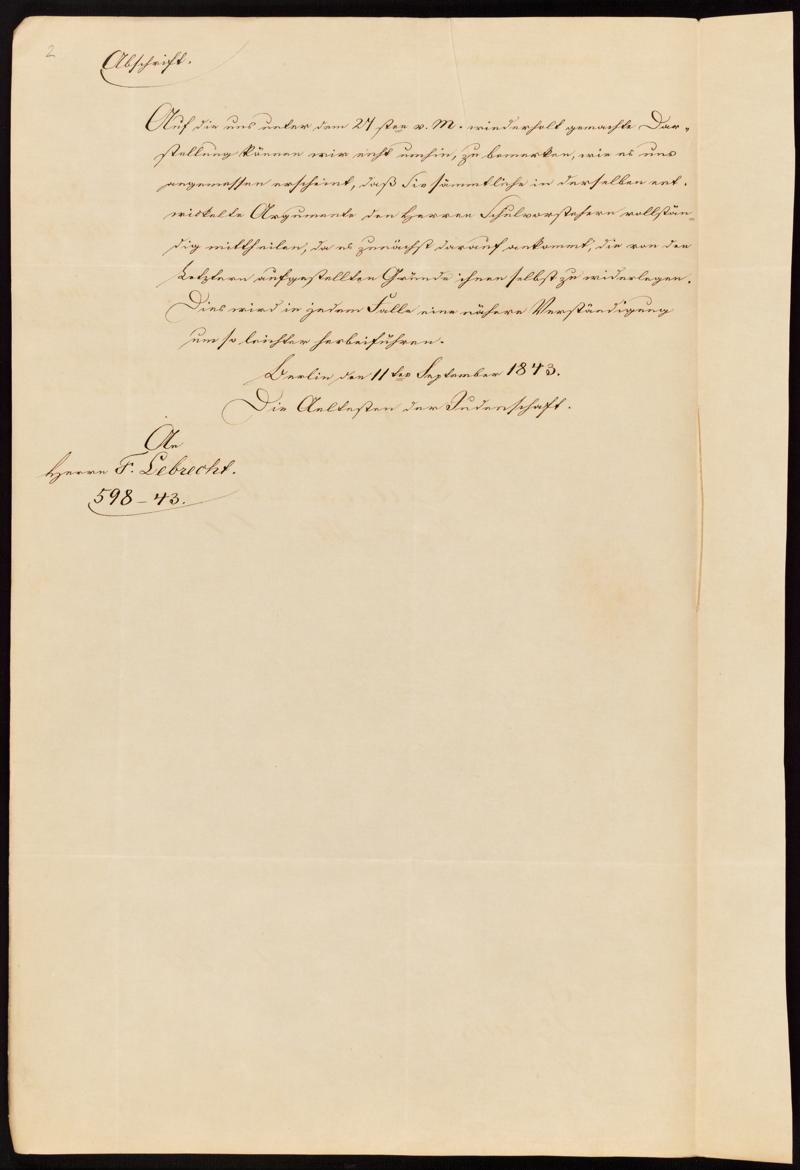 2
Abschrift.
Auf die uns unter dem 27sten v. M. wiederholt gemachte Dar-
stellung können wir nicht umhin, zu bemerken, wie es uns
angemessen erscheint, daß Sie sämmtliche in derselben ent-
wickelte Argumente den Herren Schulvorstehern vollstän-
dig mittheilen, da es zunächst darauf ankommt, die von den
Letztern aufgestellten Gründe ihnen selbst zu widerlegen.
Dies wird in jedem Falle eine nähere Verständigung
um so leichter herbeiführen.
Berlin den 11ten September 1843.
Die Aeltesten der Judenschaft.
An
Herrn F. Lebrecht.
598-43.